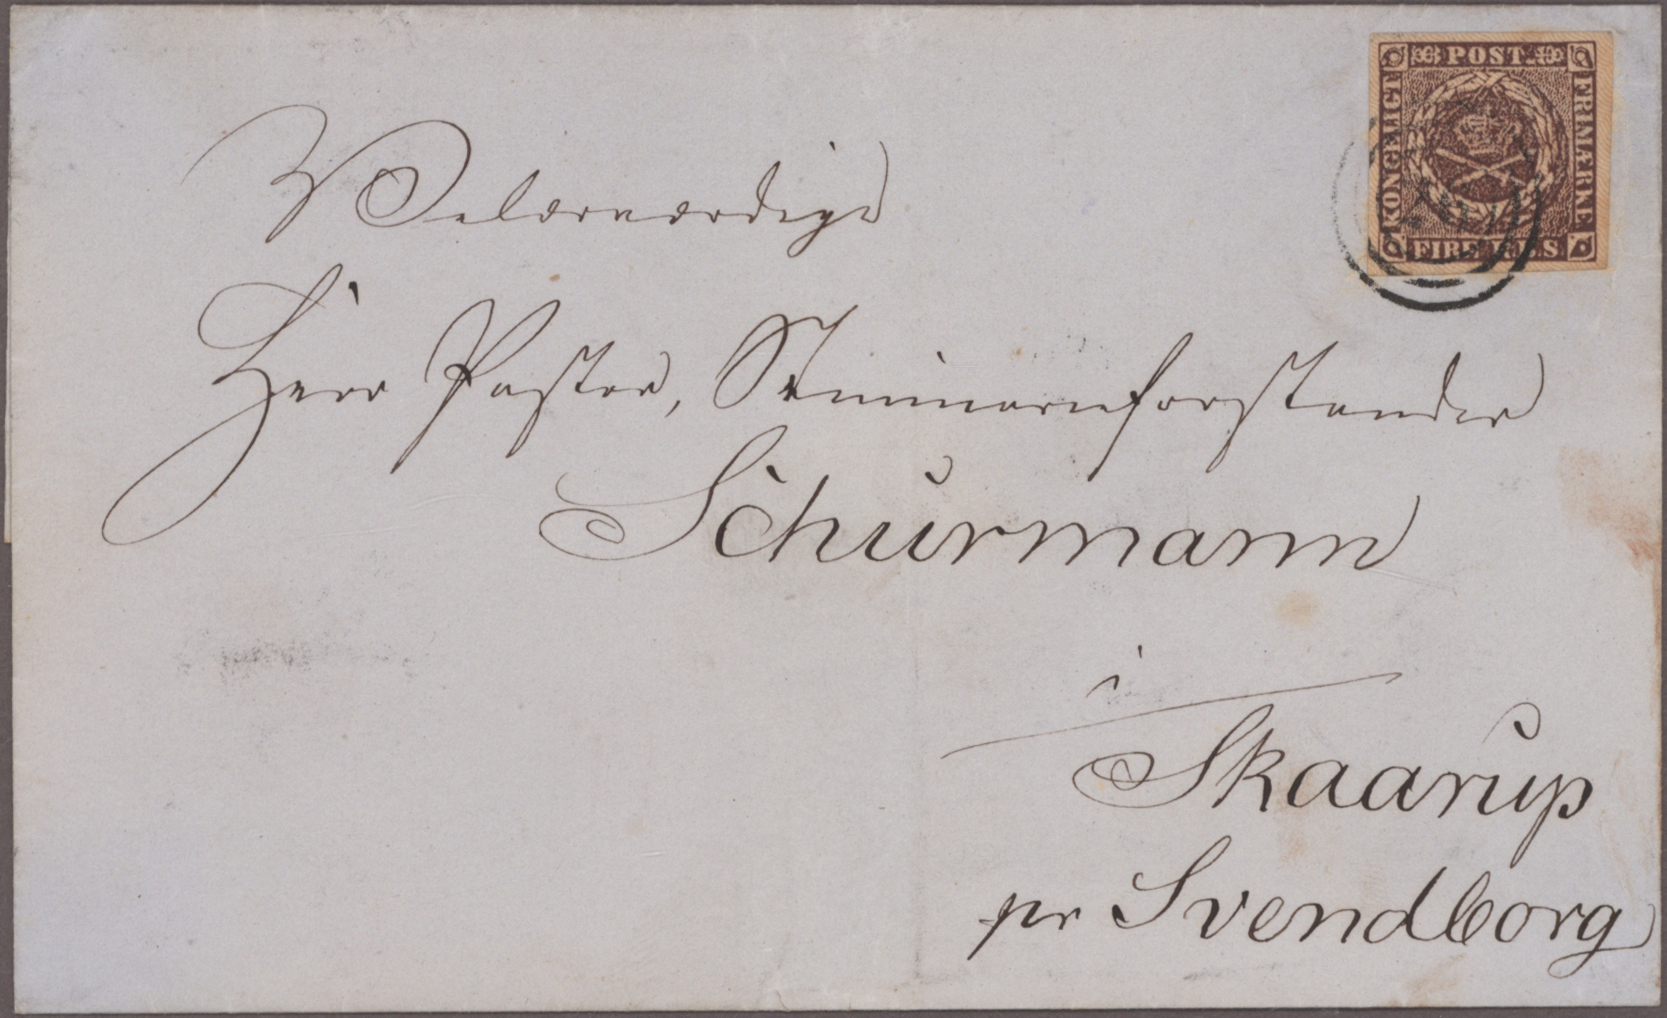 POST
KONGELIGT
FRIMÆRKE
FIRE R.B.S
Velærværdige
Herr Pastor, Seminarieforstander
Schurmann
i
Skaarup
pr Svendborg